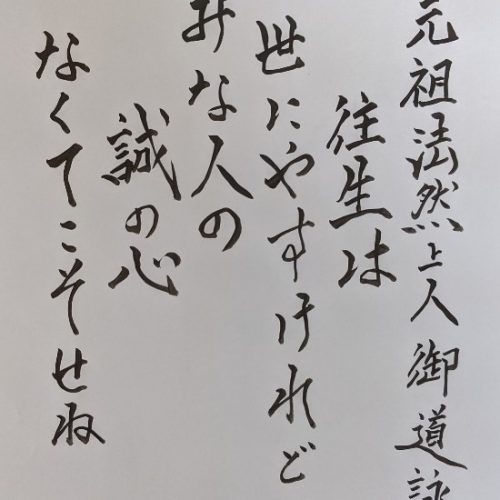 元祖法然上人御道詠
往生は
世にやすけれど
みな人の
誠の心
なくてこそせね